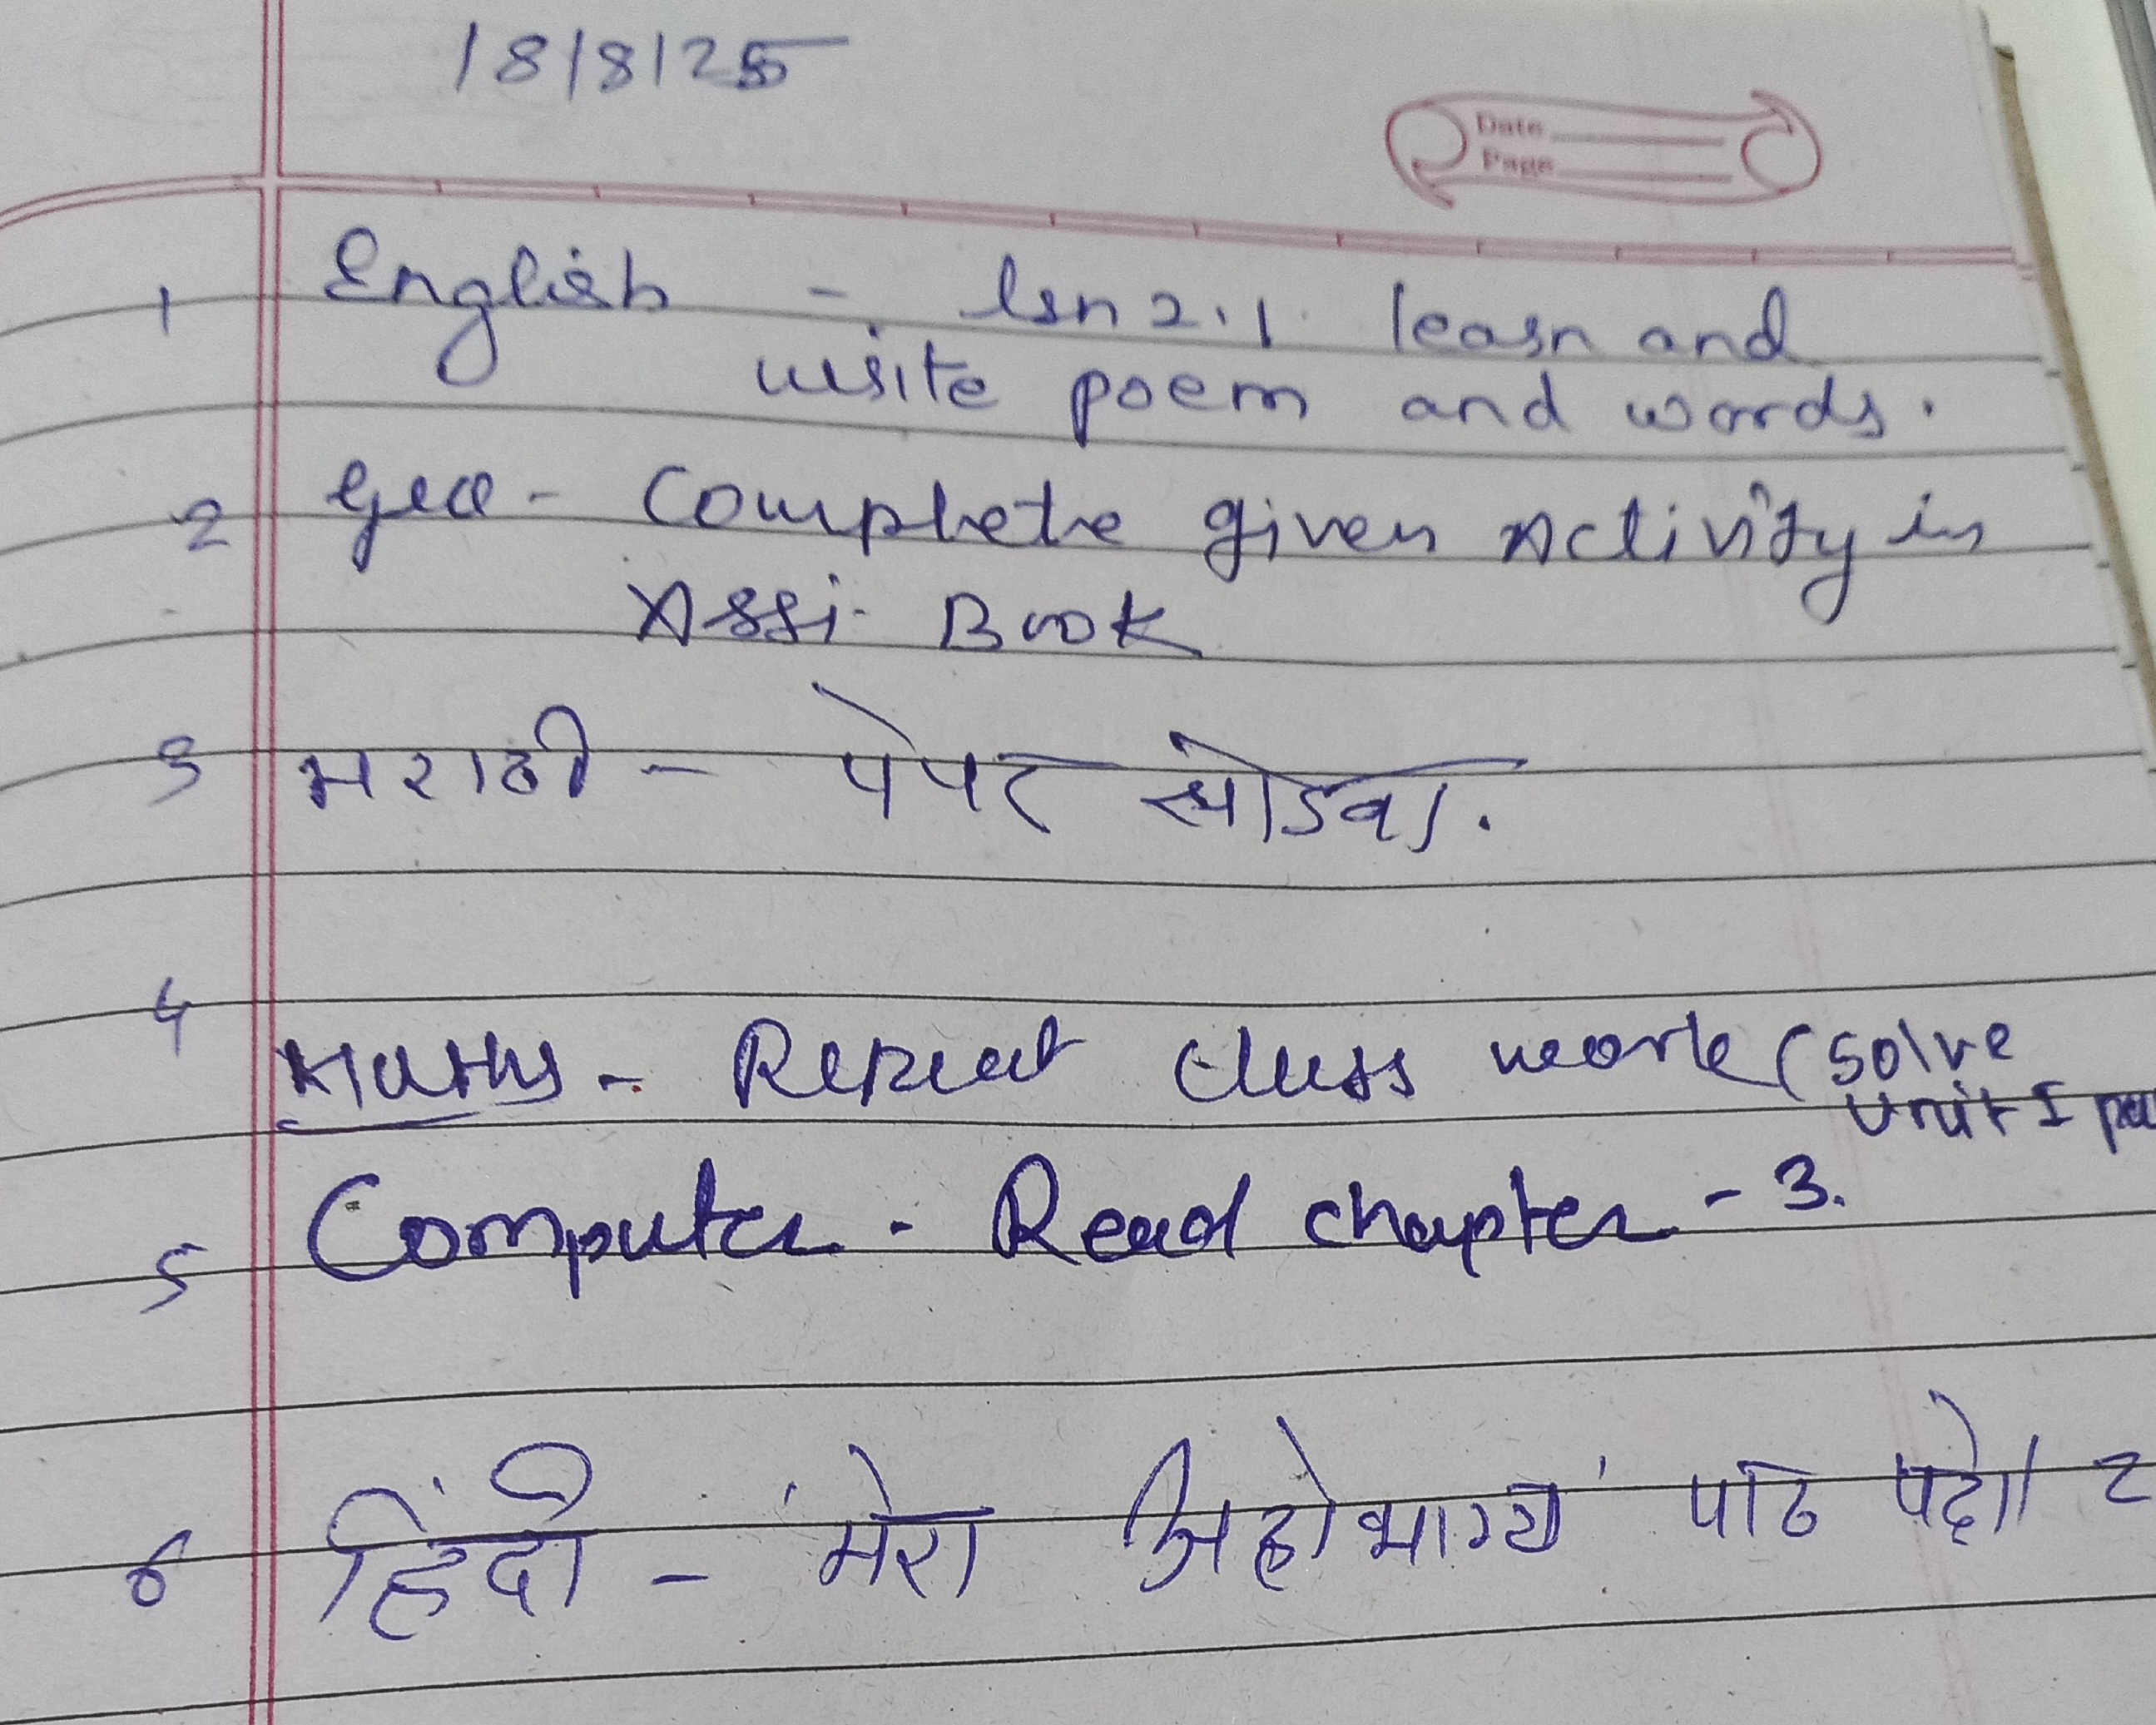 18/8/25
Date
Page
1 English - lsn 2.1 learn and
write poem and words.
2 Geo - Complete given Activity in
Assi. Book
3 मराठी - पेपर सोडवा.
4
Maths - Repeat class work (solve
unit I
5 Computer - Read chapter - 3.
6 हिंदी - 'मेरा अहोभाग्य' पाठ पढ़ो।